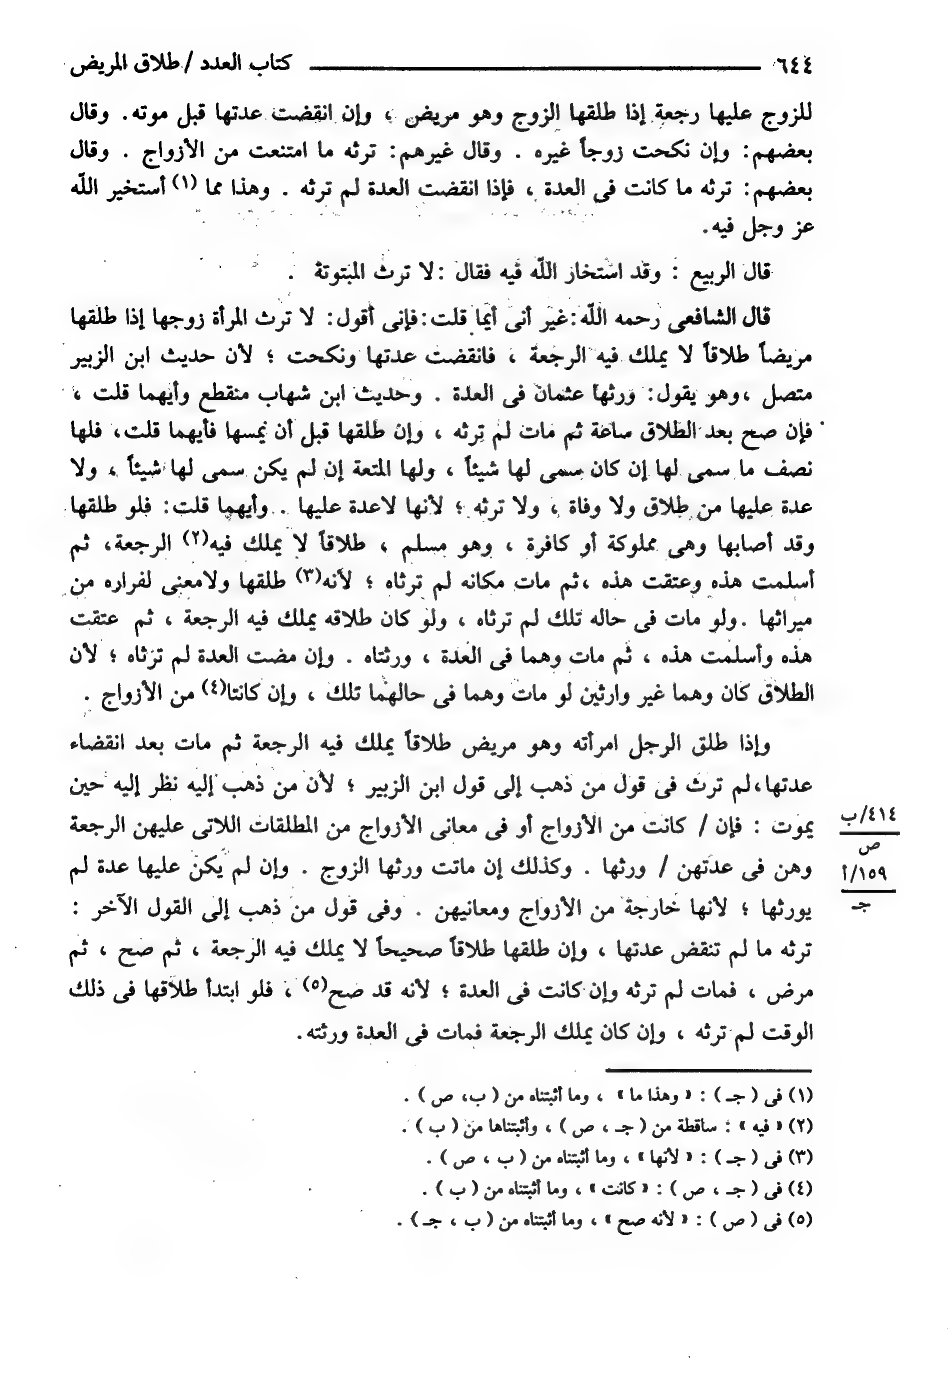 ٦٤٤ ــــــــــــــــــــ كتاب العدد / طلاق المريض
للزوج عليها رجعة إذا طلقها الزوج وهو مريض ، وإن انقضت عدتها قبل موته. وقال
بعضهم: وإن نكحت زوجاً غيره . وقال غيرهم: ترثه ما امتنعت من الأزواج . وقال
بعضهم: ترثه ما كانت فى العدة ، فإذا انقضت العدة لم ترثه . وهذا مما (١) أستخير اللّه
عز وجل فيه.
قال الربيع : وقد استخار اللّه فيه فقال :لا ترث المبتوتة .
قال الشافعى رحمه اللّه:غير أنى أيما قلت:فإنى أقول: لا ترث المرأة زوجها إذا طلقها
مريضاً طلاقاً لا يملك فيه الرجعة ، فانقضت عدتها ونكحت ؛ لأن حديث ابن الزبير
متصل ،وهو يقول: ورثها عثمان فى العدة . وحديث ابن شهاب منقطع وأيهما قلت ،
فإن صح بعد الطلاق ساعة ثم مات لم ترثه ، وإن طلقها قبل أن يمسها فأيهما قلت، فلها
نصف ما سمى لها إن كان سمى لها شيئاً ، ولها المتعة إن لم يكن سمى لها شيئاً ، ولا
عدة عليها من طلاق ولا وفاة ، ولا ترثه ؛ لأنها لاعدة عليها . وأيهما قلت: فلو طلقها
وقد أصابها وهى مملوكة أو كافرة ، وهو مسلم ، طلاقاً لا يملك فيه(٢) الرجعة، ثم
أسلمت هذه وعتقت هذه ،ثم مات مكانه لم ترثاه ؛ لأنه(٣) طلقها ولامعنى لفراره من
ميراثها .ولو مات فى حاله تلك لم ترثاه ، ولو كان طلاقه يملك فيه الرجعة ، ثم عتقت
هذه وأسلمت هذه ، ثم مات وهما فى العدة ، ورثتاه . وإن مضت العدة لم ترثاه ؛ لأن
الطلاق كان وهما غير وارثين لو مات وهما فى حالهما تلك ، وإن كانتا(٤) من الأزواج .
وإذا طلق الرجل امرأته وهو مريض طلاقاً يملك فيه الرجعة ثم مات بعد انقضاء
عدتها،لم ترث فى قول من ذهب إلى قول ابن الزبير ؛ لأن من ذهب إليه نظر إليه حين
يموت : فإن / كانت من الأزواج أو فى معانى الأزواج من المطلقات اللاتى عليهن الرجعة
وهن فى عدتهن / ورثها . وكذلك إن ماتت ورثها الزوج . وإن لم يكن عليها عدة لم
يورثها ؛ لأنها خارجة من الأزواج ومعانيهن . وفى قول من ذهب إلى القول الآخر :
ترثه ما لم تنقض عدتها ، وإن طلقها طلاقاً صحيحاً لا يملك فيه الرجعة ، ثم صح ، ثم
مرض ، فمات لم ترثه وإن كانت فى العدة ؛ لأنه قد صح(٥) ، فلو ابتدأ طلاقها فى ذلك
الوقت لم ترثه ، وإن كان يملك الرجعة فمات فى العدة ورثته.
٤١٤/ب
ص
١٥٩/أ
جـ
(١) فى ( جـ ) : « وهذا ما » ، وما أثبتناه من ( ب، ص ) .
(٢) « فيه » : ساقطة من ( جـ ، ص ) ، وأثبتناها من ( ب ) .
(٣) فى ( جـ ) : « لأنها » ، وما أثبتناه من ( ب ، ص ) .
(٤) فى ( جـ ، ص ) : « كانت » ، وما أثبتناه من ( ب ) .
(٥) فى ( ص ) : « لأنه صح » ، وما أثبتناه من ( ب ، جـ ) .